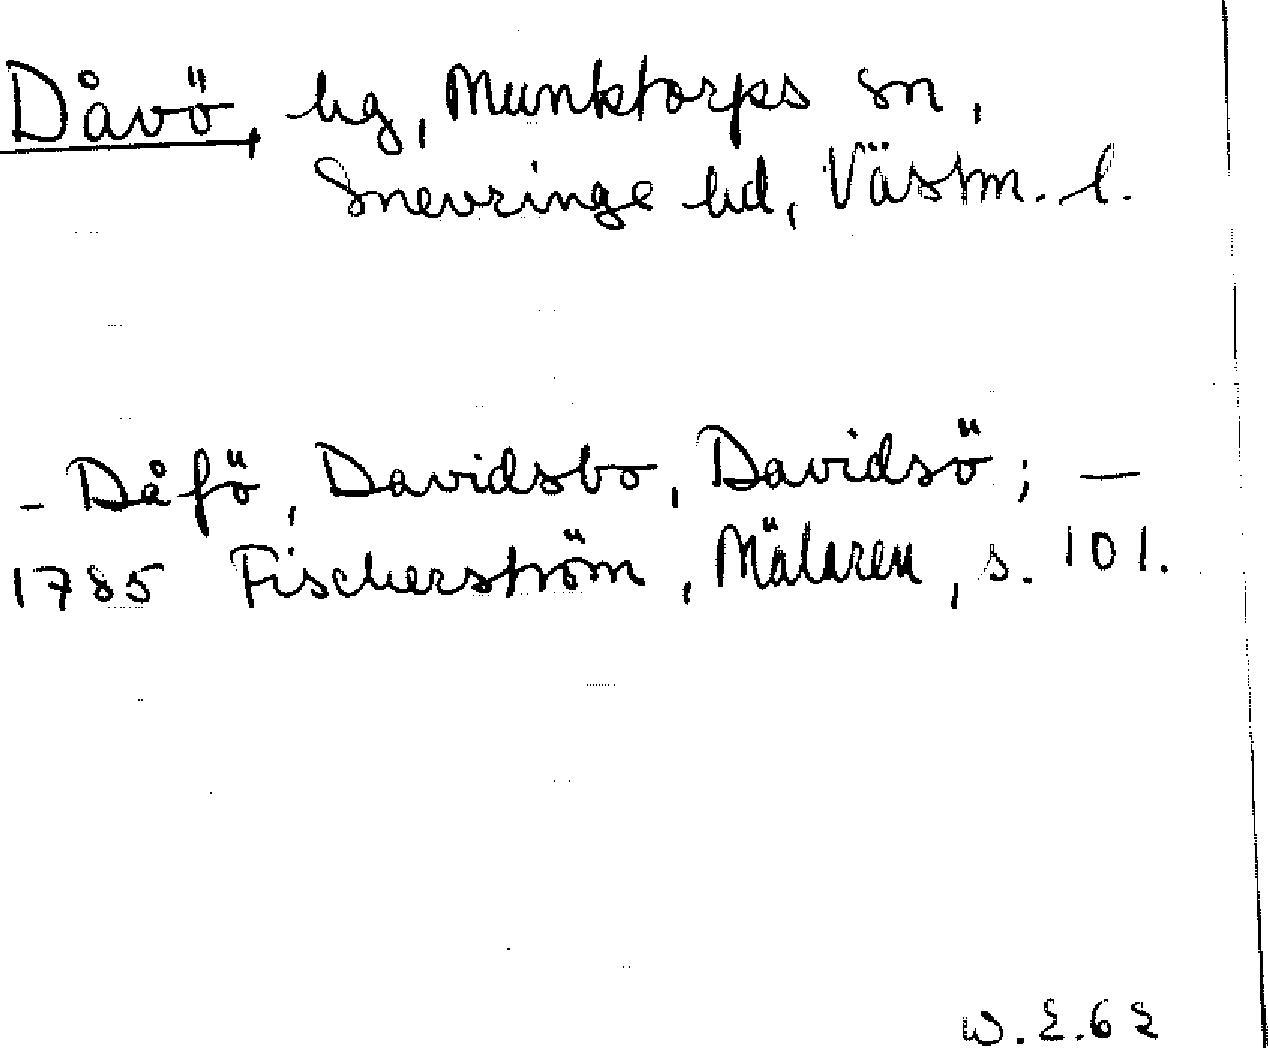 Dåvö, hg, Munktorps sn,
Snevringe hd, Västm. l.
- Dåfö, Davidsbo, Davidsö; —
1785 Fischerström, Mälaren, s. 101.
W. E. 62